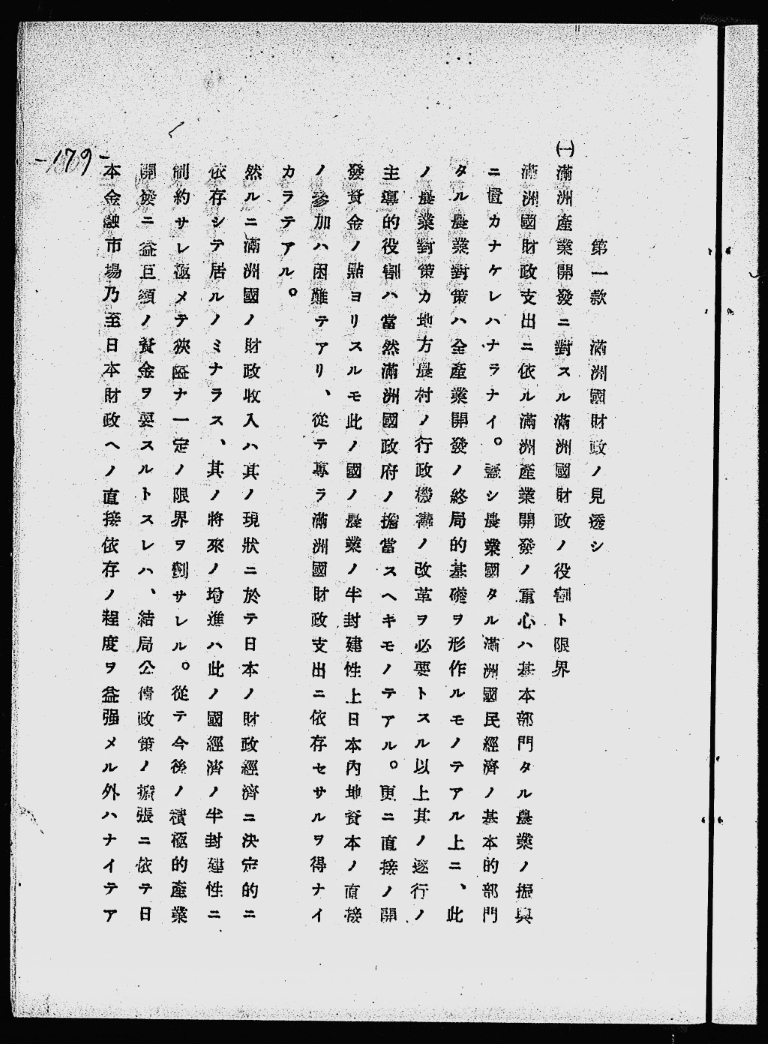 第一款　滿洲國財政ノ見透シ
㈠滿洲產業開發ニ對スル滿洲國財政ノ役割ト限界
滿洲國財政支出ニ依ル滿洲產業開發ノ重心ハ基本部門タル農業ノ振興
ニ置カナケレハナラナイ。蓋シ農業國タル滿洲國民經濟ノ基本的部門
タル農業對策ハ全產業開發ノ終局的基礎ヲ形作ルモノテアル上ニ、此
ノ農業對策カ地方農村ノ行政機構ノ改革ヲ必要トスル以上其ノ遂行ノ
主導的役割ハ當然滿洲國政府ノ擔當スヘキモノテアル。更ニ直接ノ開
發資金ノ點ヨリスルモ此ノ國ノ農業ノ半封建性上日本內地資本ノ直接
ノ參加ハ困難テアリ、從テ專ラ滿洲國財政支出ニ依存セサルヲ得ナイ
カラテアル。
然ルニ滿洲國ノ財政收入ハ其ノ現狀ニ於テ日本ノ財政經濟ニ決定的ニ
依存シテ居ルノミナラス、其ノ將來ノ增進ハ此ノ國經濟ノ半封建性ニ
制約サレ極メテ狹隘ナ一定ノ限界ヲ劃サレル。從テ今後ノ積極的產業
開發ニ益巨額ノ資金ヲ要スルトスレハ、結局公債政策ノ擴張ニ依テ日
本金融市場乃至日本財政ヘノ直接依存ノ程度ヲ益强メル外ハナイテア
-179-